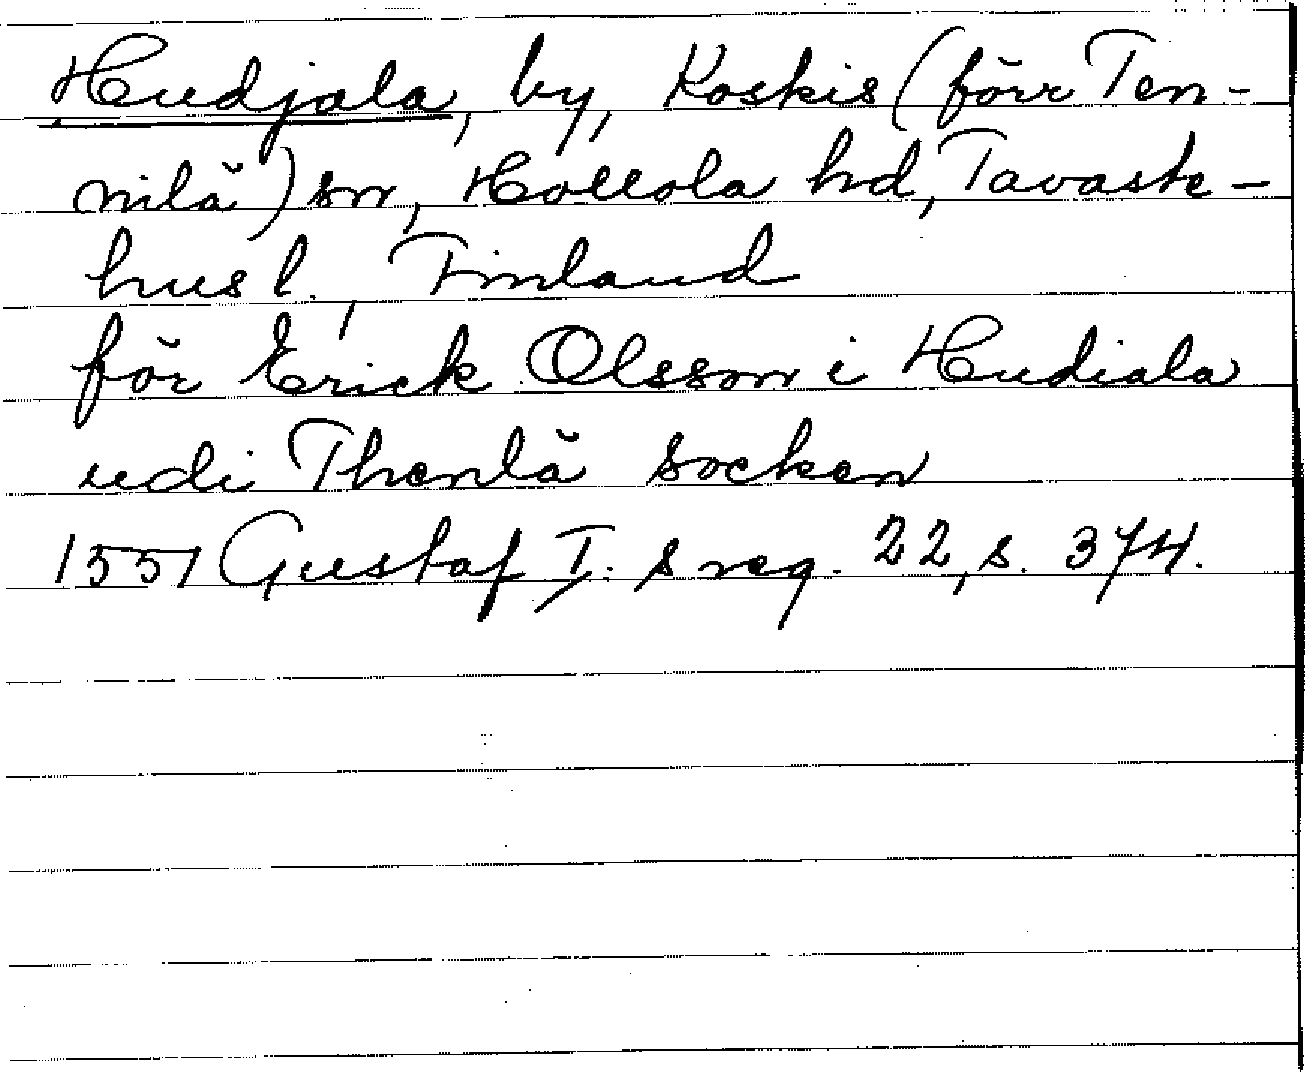 Hudjala, by, Koskis (förr Ten-
nilä) sn, Hollola hd, Tavaste-
hus l., Finland
för Erick Olsson i Hudiala
udi Thenlä socken
1551 Gustaf I:s reg. 22, s. 374.